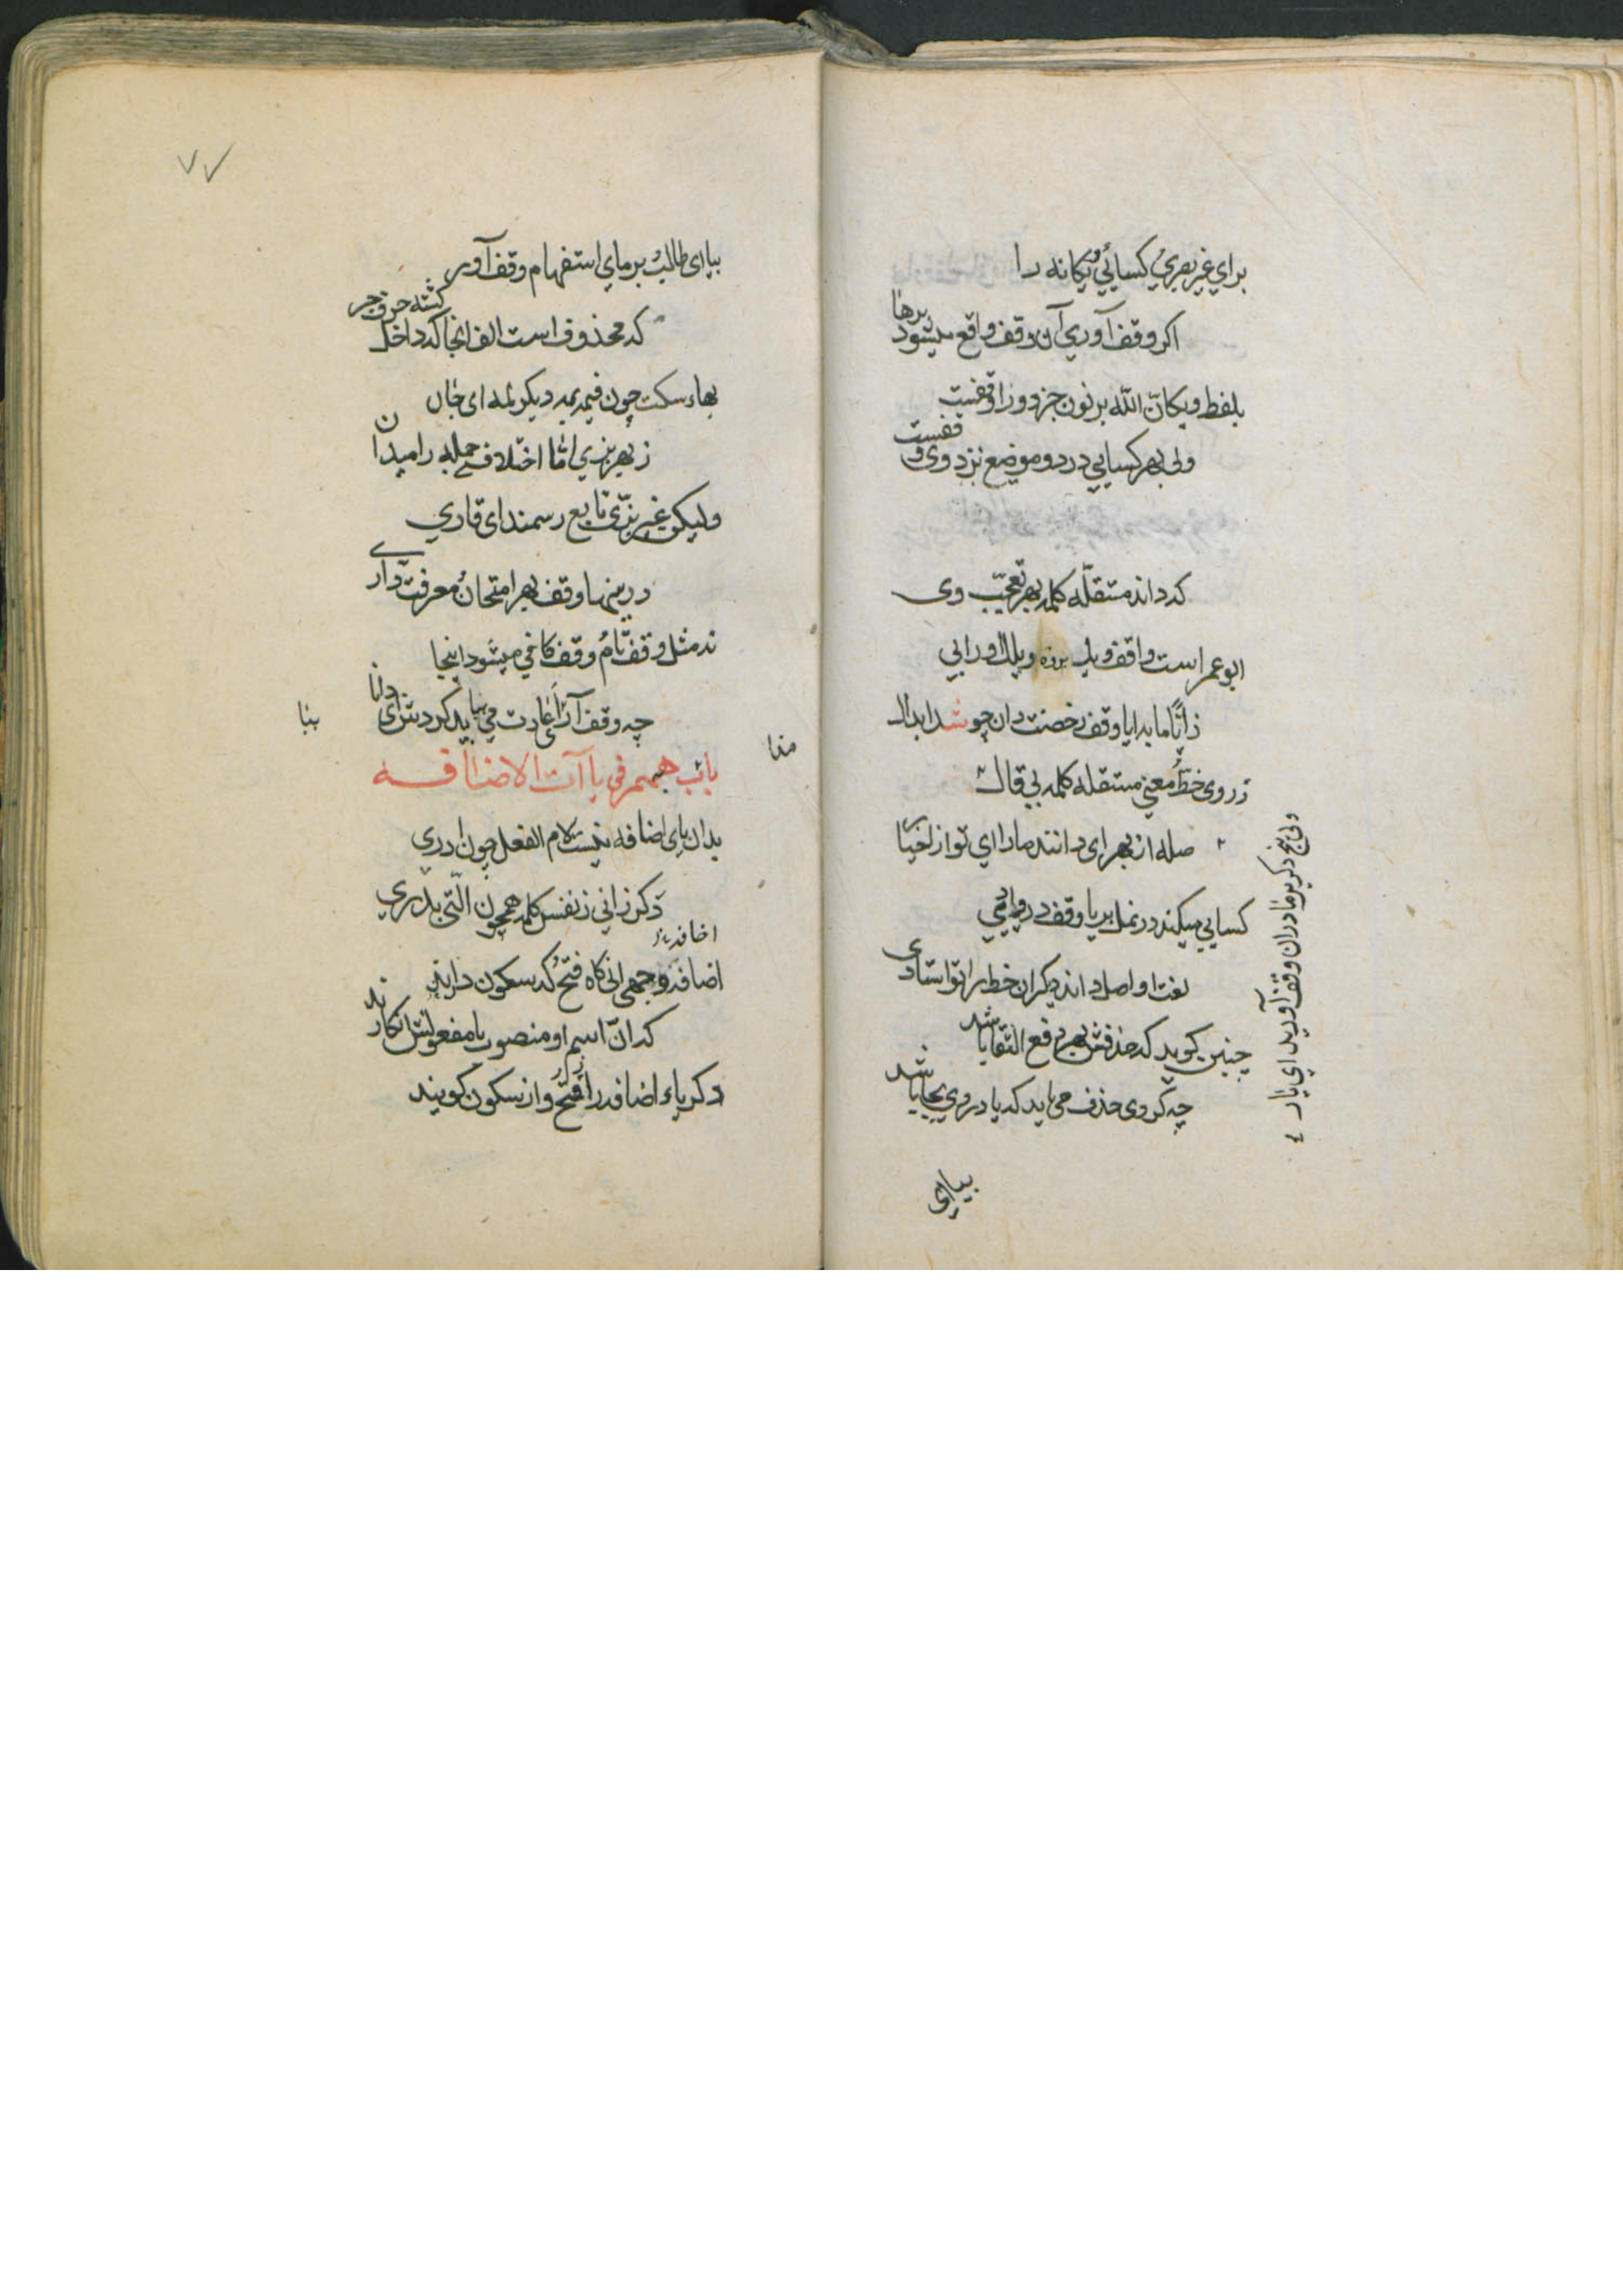 برای غیر بصری کسائی ویکانه را
اکر وقف آوری آن وقف واقع میشود برها
بلفظ ویکان الله بر نون جزو ورا وقفیت
ولی بهر کسایی در دو موضع نزد وی وقفست
که داند مستقله کلمه بهر تعجب وی
ابو عمر است واقف ویک ویلک اورا بی
ز ایا ما بدایا وقف رخصت دان چو شد ابدال
ز روی خط معنی مستقله کلمه بی قال
صله از بهر ای دانند ما را ای تو از اخیار
ولی بر ما دران وقف آورید ای یار
کسایی میکند در نمل بر یا وقف در وادی
لغت او اصل داند دیکران خط را تو استادی
چنین کوید که حذفش بهر دفع التقا باشد
چه کر وی حذف می باید که یا در وی بجا باشد
بیا ای
٧٧
بیا ای طالب بر مای استفهام وقف آور
که محذوف است الف انجا که داخل کشته حرف جر
بهاء سکت چون فیمه بمه دیکر لمه ای جان
ز بهر بزی اما اختلاف جمله را میدان
ولیکن غیر بزی تابع رسمند ای قاری
درینها وقف بهر امتحان معرفت داری
نه مثل وقف تام وقف کافی میشود اینجا
چه وقف آرا اعادت می بباید کردنش ای دانا
بنا
باب هم فی یاآت الاضافه
بدان یای اضافه نیست لام الفعل چون ادری
دکر زانی ز نفس کلمه همچون التی بدری
اضافه وجهی انی کاه فتح که سکون دارند
که ان اسم او منصوب یا مفعولش انکارند
دکر یاء اضافه را فتح و از سکون کویند